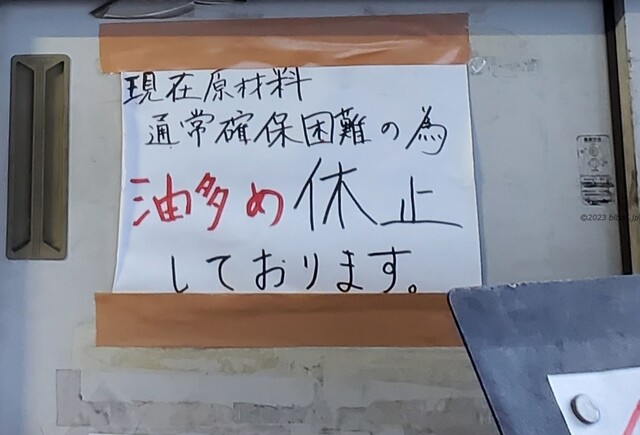 現在原材料
通常確保困難の為
油多め休止
しております。